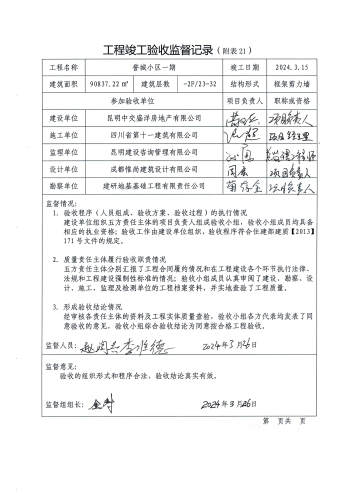 工程竣工验收监督记录（附表21）
工程名称 誉城小区一期 竣工日期 2024.3.15
建筑面积 90837.22㎡ 建筑层数 -2F/23-32 结构形式 框架剪力墙
参加验收单位 项目负责人 职称或资格
建设单位 昆明中交盛洋房地产有限公司 项目负责人
施工单位 四川省第十一建筑有限公司 项目经理
监理单位 昆明建设咨询管理有限公司
设计单位 成都惟尚建筑设计有限公司 项目负责人
勘察单位 建研地基基础工程有限责任公司 项目负责人
监督情况：
1. 验收程序（人员组成、验收方案，验收过程）的执行情况
建设单位组织五方责任主体的项目负责人组成验收小组，验收小组成员均具备
相应的执业资格；验收工作由建设单位组织，验收程序符合住建部建质【2013】
171号文件的规定。
2. 质量责任主体履行验收职责情况
五方责任主体分别汇报了工程合同履约情况和在工程建设各个环节执行法律、
法规和工程建设强制性标准的情况；验收小组成员认真审阅了建设、勘察、设
计、施工、监理及检测单位的工程档案资料，并实地查验了工程质量。
3. 形成验收结论情况
经审核各责任主体的资料及工程实体质量查验，验收小组各方代表均发表了同
意验收的意见，验收小组综合验收结论为同意按合格工程验收。
监督人员： 2024年3月26日
监督意见：
验收的组织形式和程序合法，验收结论真实有效。
监督组组长： 2024年3月26日
第 页共 页